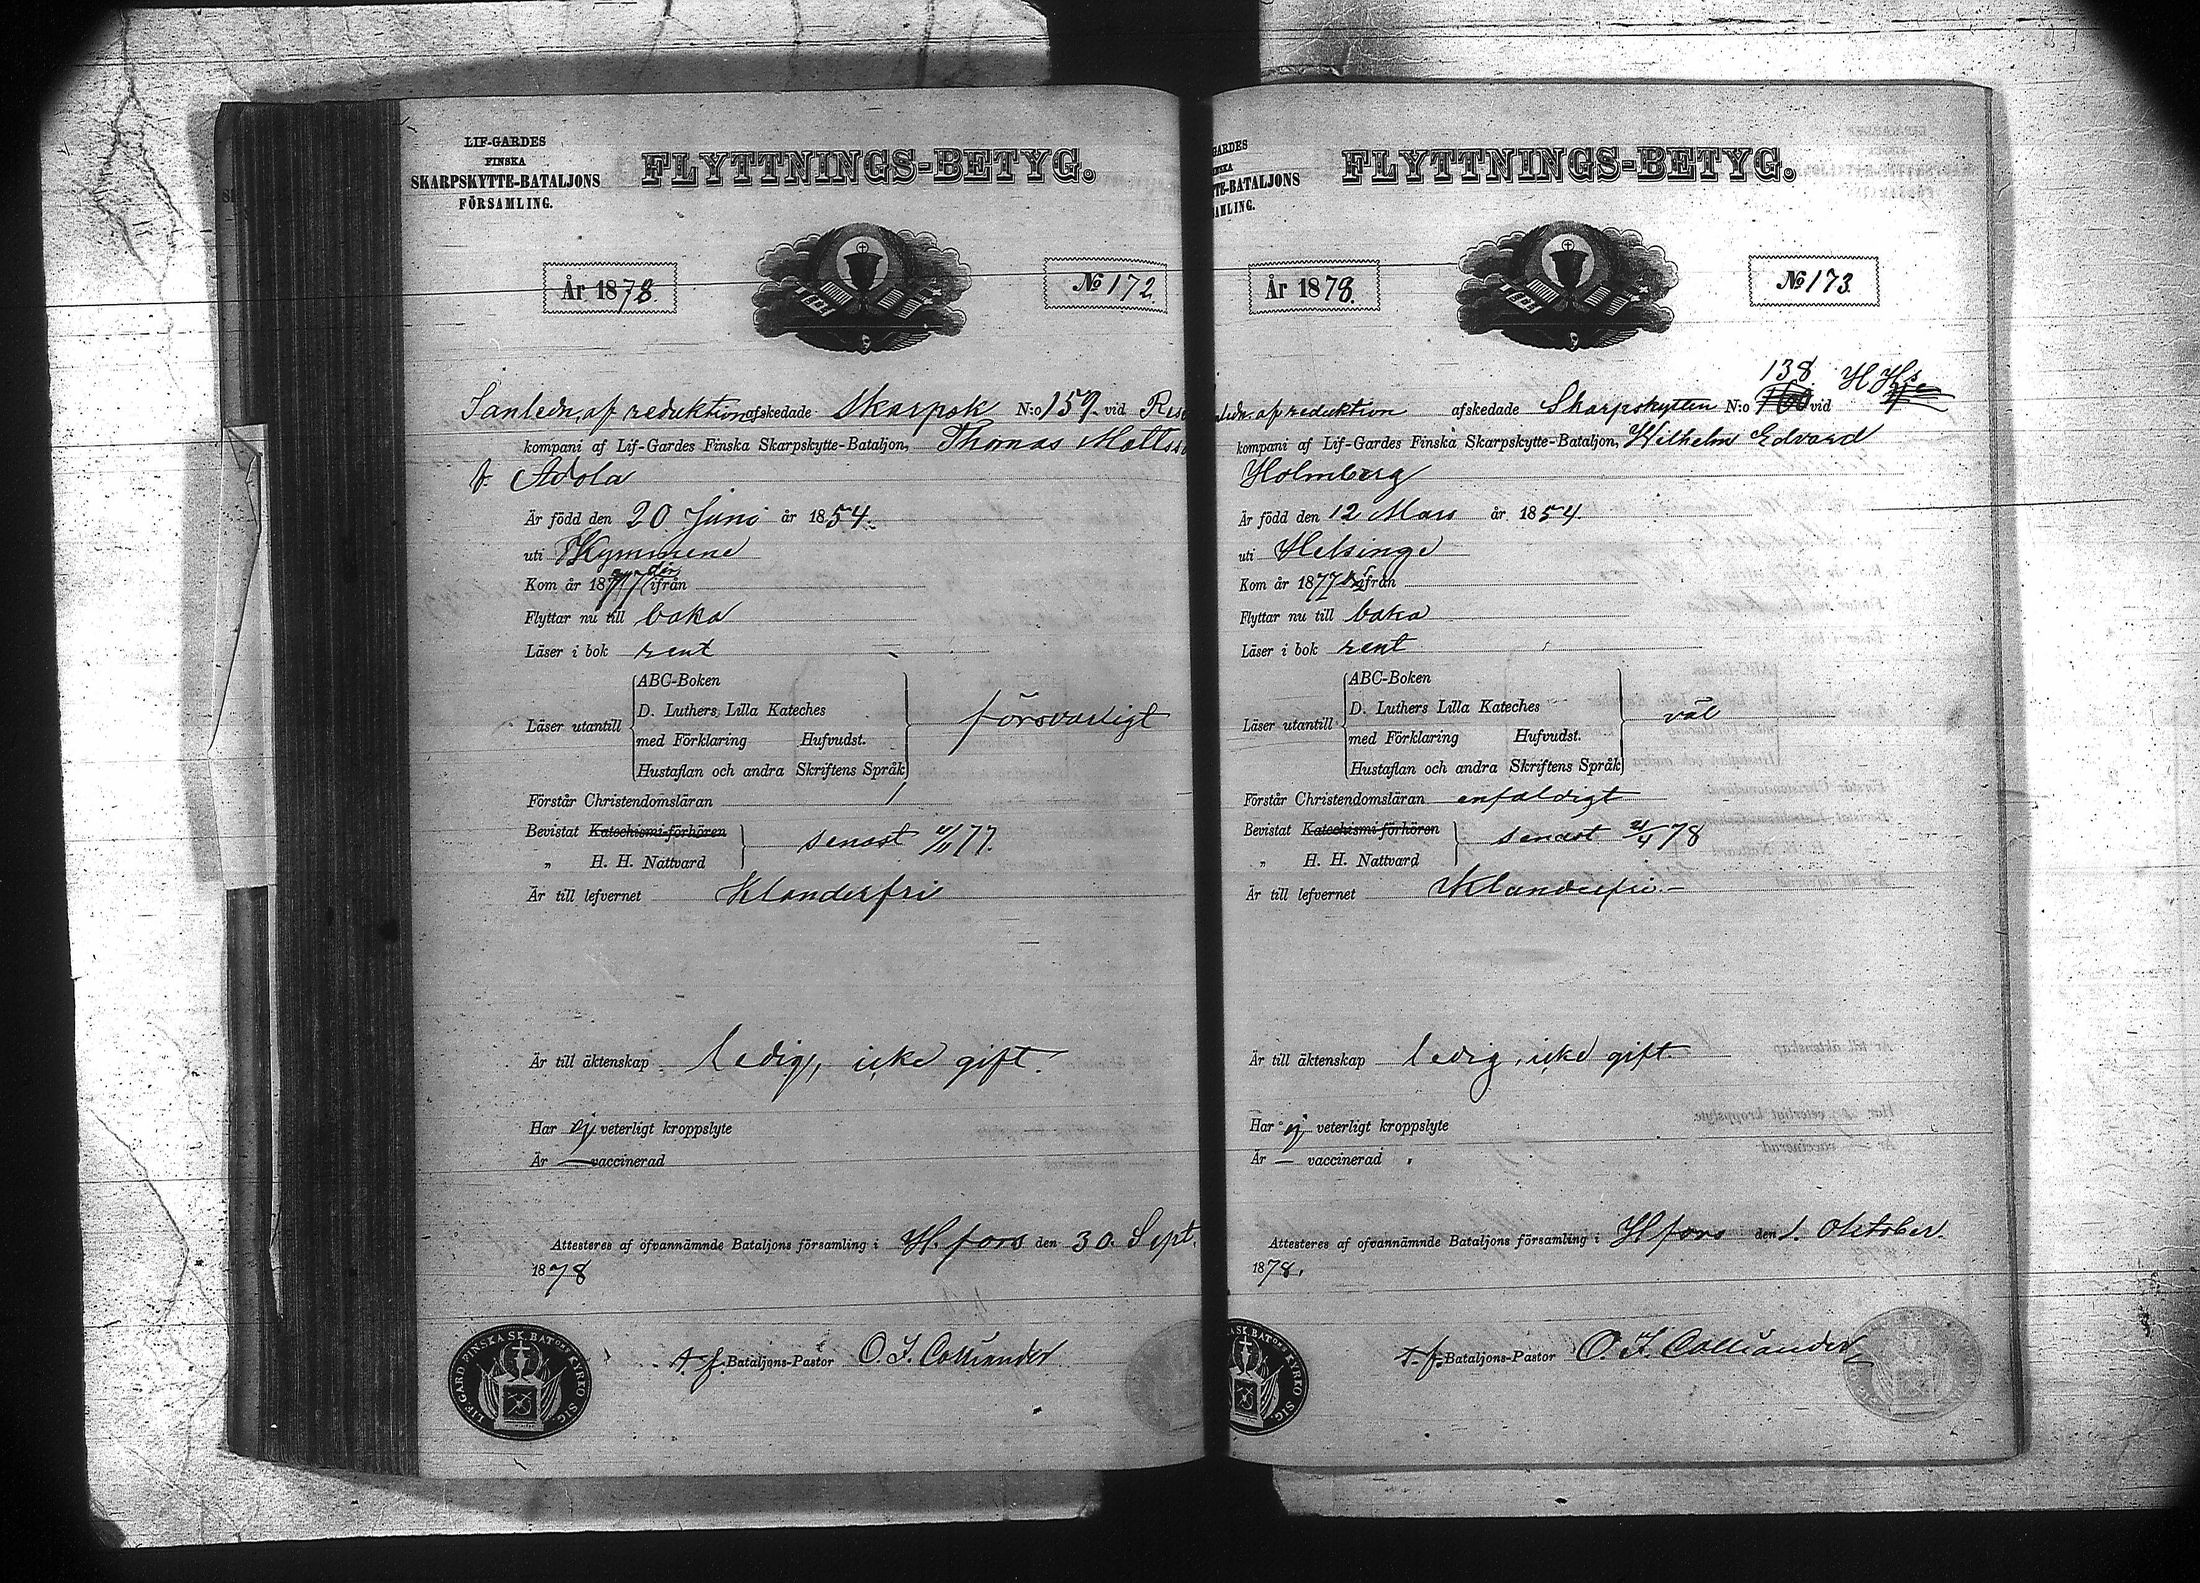 LIF-GARDES
FINSKA
SKARPSKYTTE-BATALJONS
FÖRSAMLING.
FLYTTNINGS-BETYG.
År 1878.
No 172.
af reduktion afskedade Skarpsk N:o 159 vid
kompani af Lif-Gardes Finska Skarpskytte-Bataljon, Thomas Matts
f. Adola
Är född den 20 Juni år 1854.
uti Kymmene
Kom år 1877 där ifrån
Flyttar nu till baka
Läser i bok rent
Läser utantill
ABC-Boken
D. Luthers Lilla Kateches
med Förklaring Hufvudst.
Hustaflan och andra Skriftens Språk
försvarligt
Förstår Christendomsläran
Bevistat Katechismi-förhören
„ H. H. Nattvard
senast 77.
Är till lefvernet Klanderfri
Är till äktenskap ledig, icke gift.
Har ej veterligt kroppslyte
Är — vaccinerad
Attesteres af öfvannämnde Bataljons församling i H.fors den 30. Sept.
1878
t. f. Bataljons-Pastor O. F. Colliander
LIF. GARD. FINSKA SK. BATONS KYRKO SIG.
GARDES
NSKA
TE-BATALJONS
AMLING.
FLYTTNINGS-BETYG.
År 1878.
No 173.
138 H Hs
af reduktion afskedade Skarpskytten N:o 160 vid
kompani af Lif-Gardes Finska Skarpskytte-Bataljon, Wilhelm Edvard
Holmberg
Är född den 12 Mars år 1854.
uti Helsinge
Kom år 1877 ifrån
Flyttar nu till baka
Läser i bok rent
Läser utantill
ABC-Boken
D. Luthers Lilla Kateches
med Förklaring Hufvudst.
Hustaflan och andra Skriftens Språk
väl
Förstår Christendomsläran enfaldigt
Bevistat Katechismi-förhören
„ H. H. Nattvard
senast 21/4 78
Är till lefvernet Klanderfri.—
Är till äktenskap ledig, icke gift.
Har ej veterligt kroppslyte
Är — vaccinerad
Attesteres af ofvannämnde Bataljons församling i H fors den 1. Oktober.
1878.
t. f. Bataljons-Pastor O. F. Colliander
SK. BATONS KYRKO SIG.